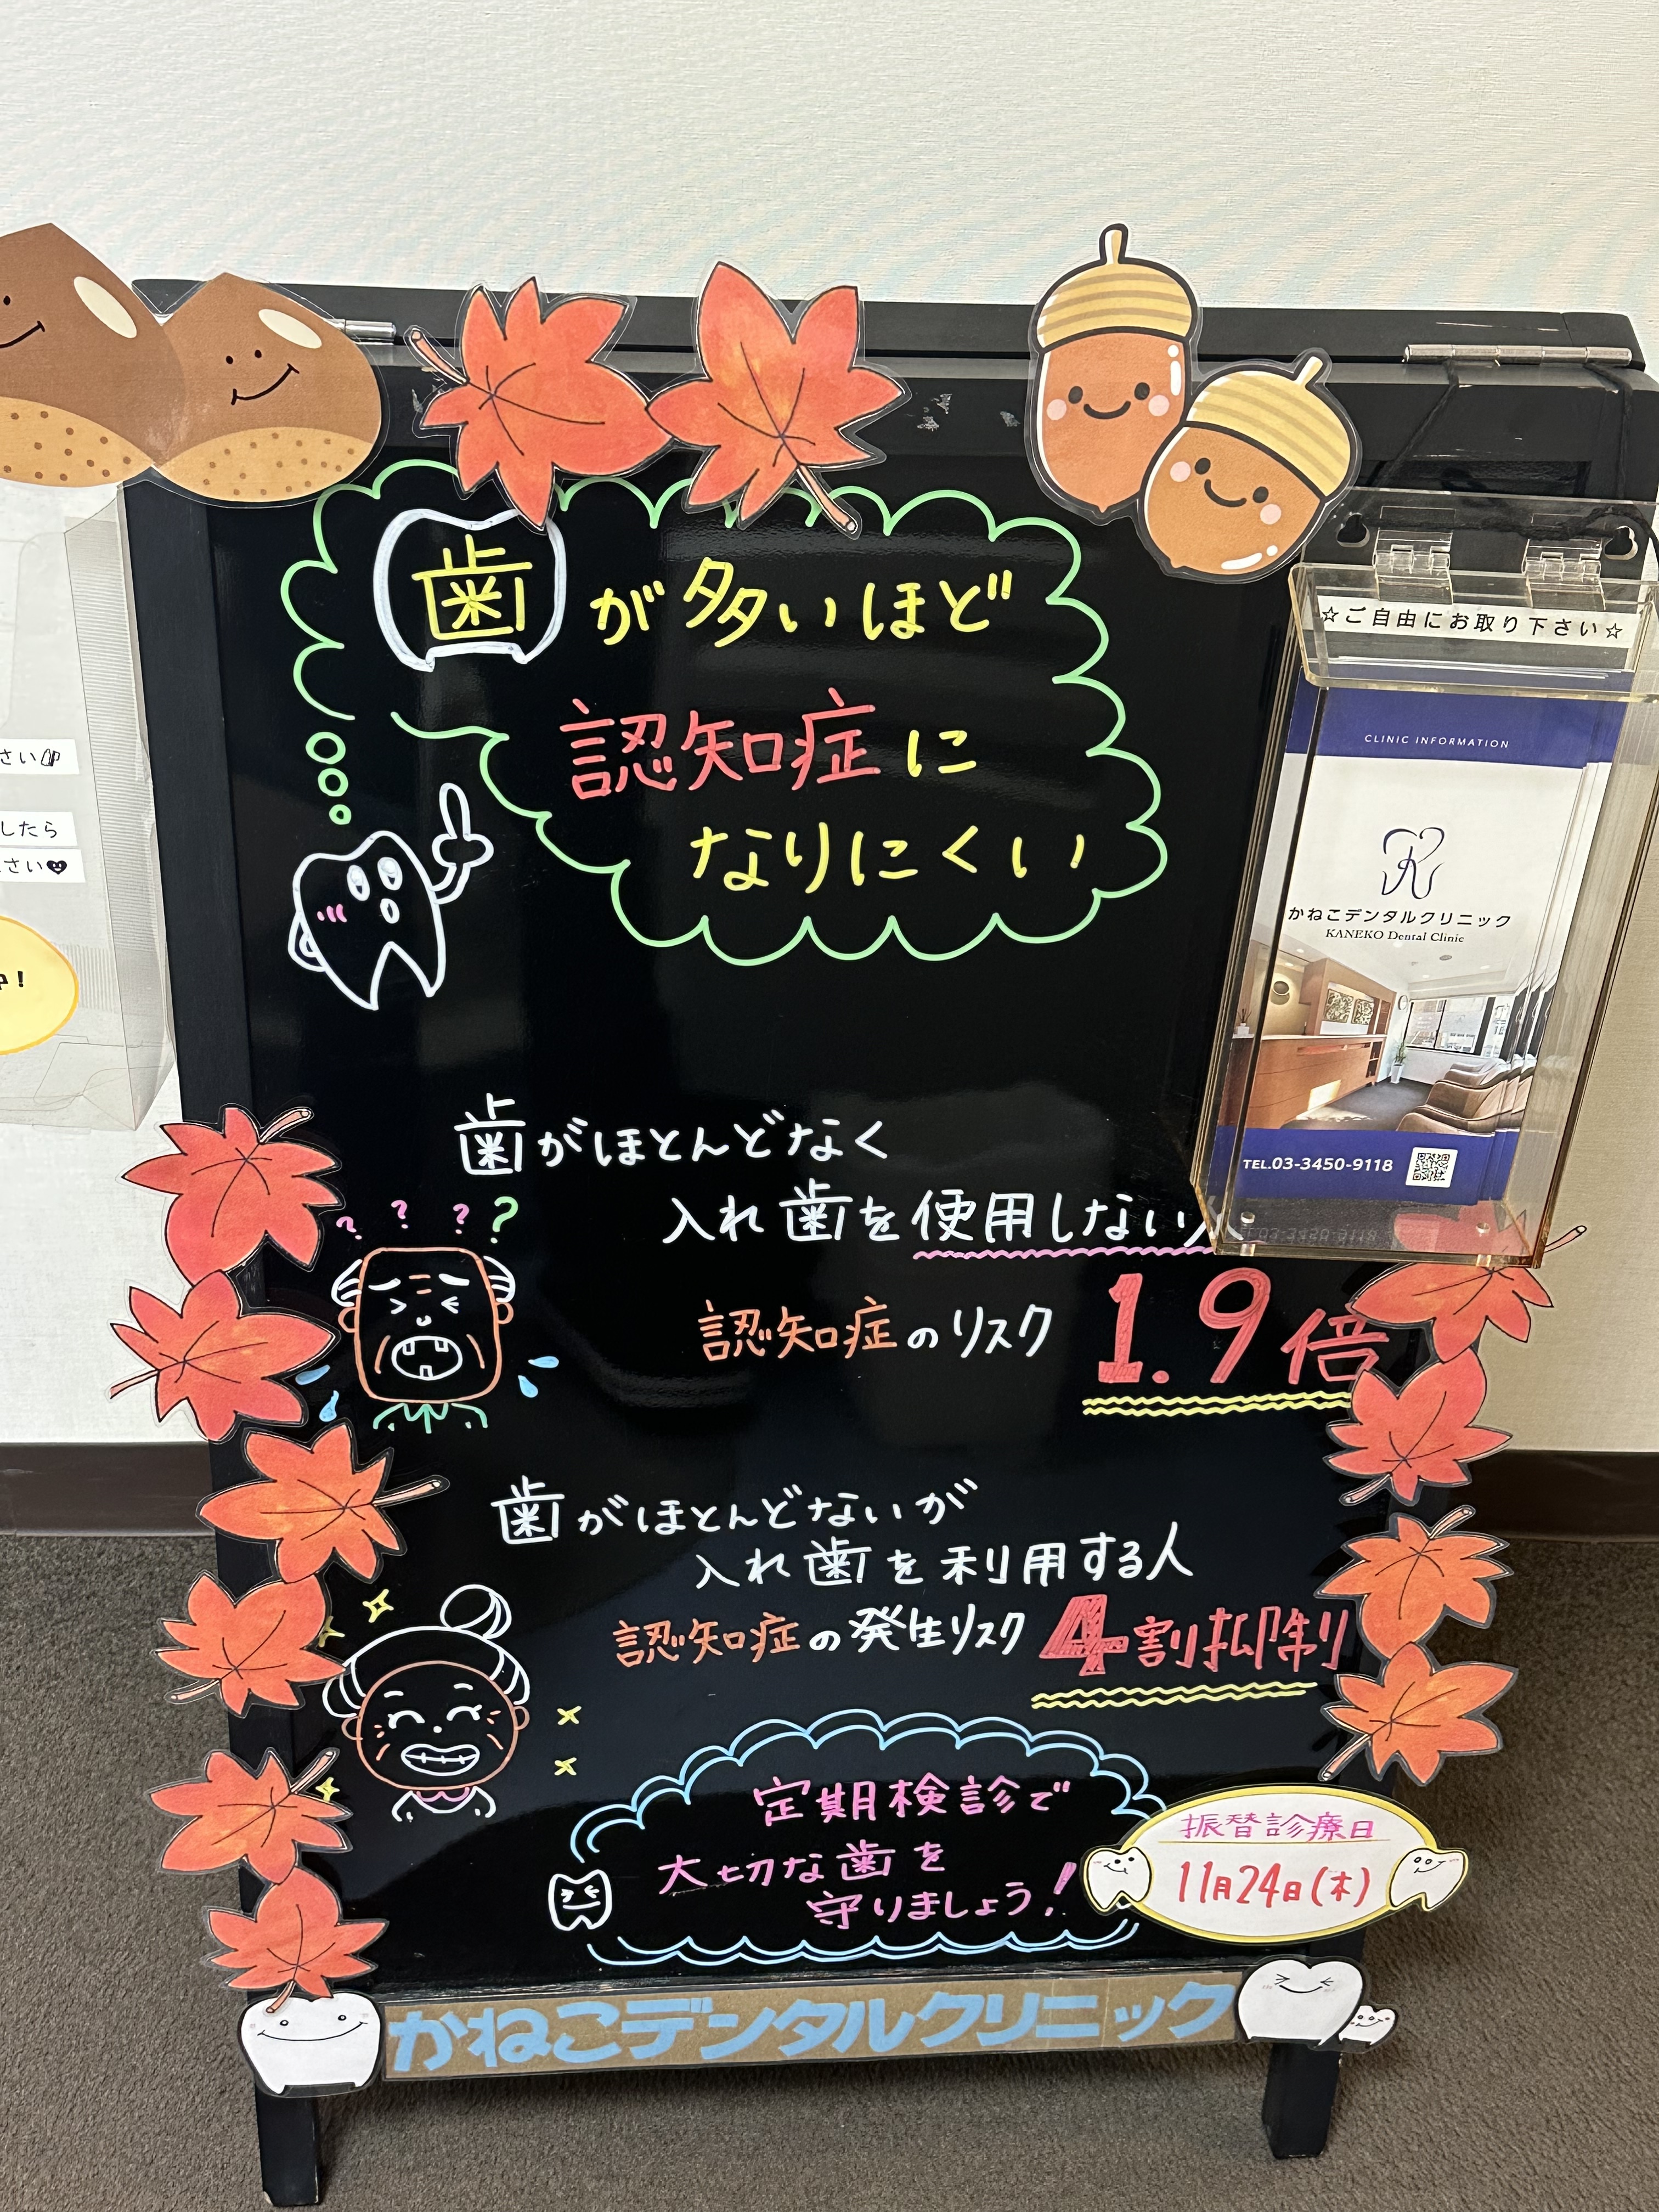 歯が多いほど
認知症に
なりにくい
☆ご自由にお取り下さい☆
CLINIC INFORMATION
かねこデンタルクリニック
KANEKO Dental Clinic
TEL.03-3450-9118
さい
したら
さい
!
? ? ? ?
歯がほとんどなく
入れ歯を使用しない人
認知症のリスク 1.9倍
歯がほとんどないが
入れ歯を利用する人
認知症の発生リスク 4割抑制
定期検診で
大切な歯を
守りましょう!
振替診療日
11月24日(木)
かねこデンタルクリニック